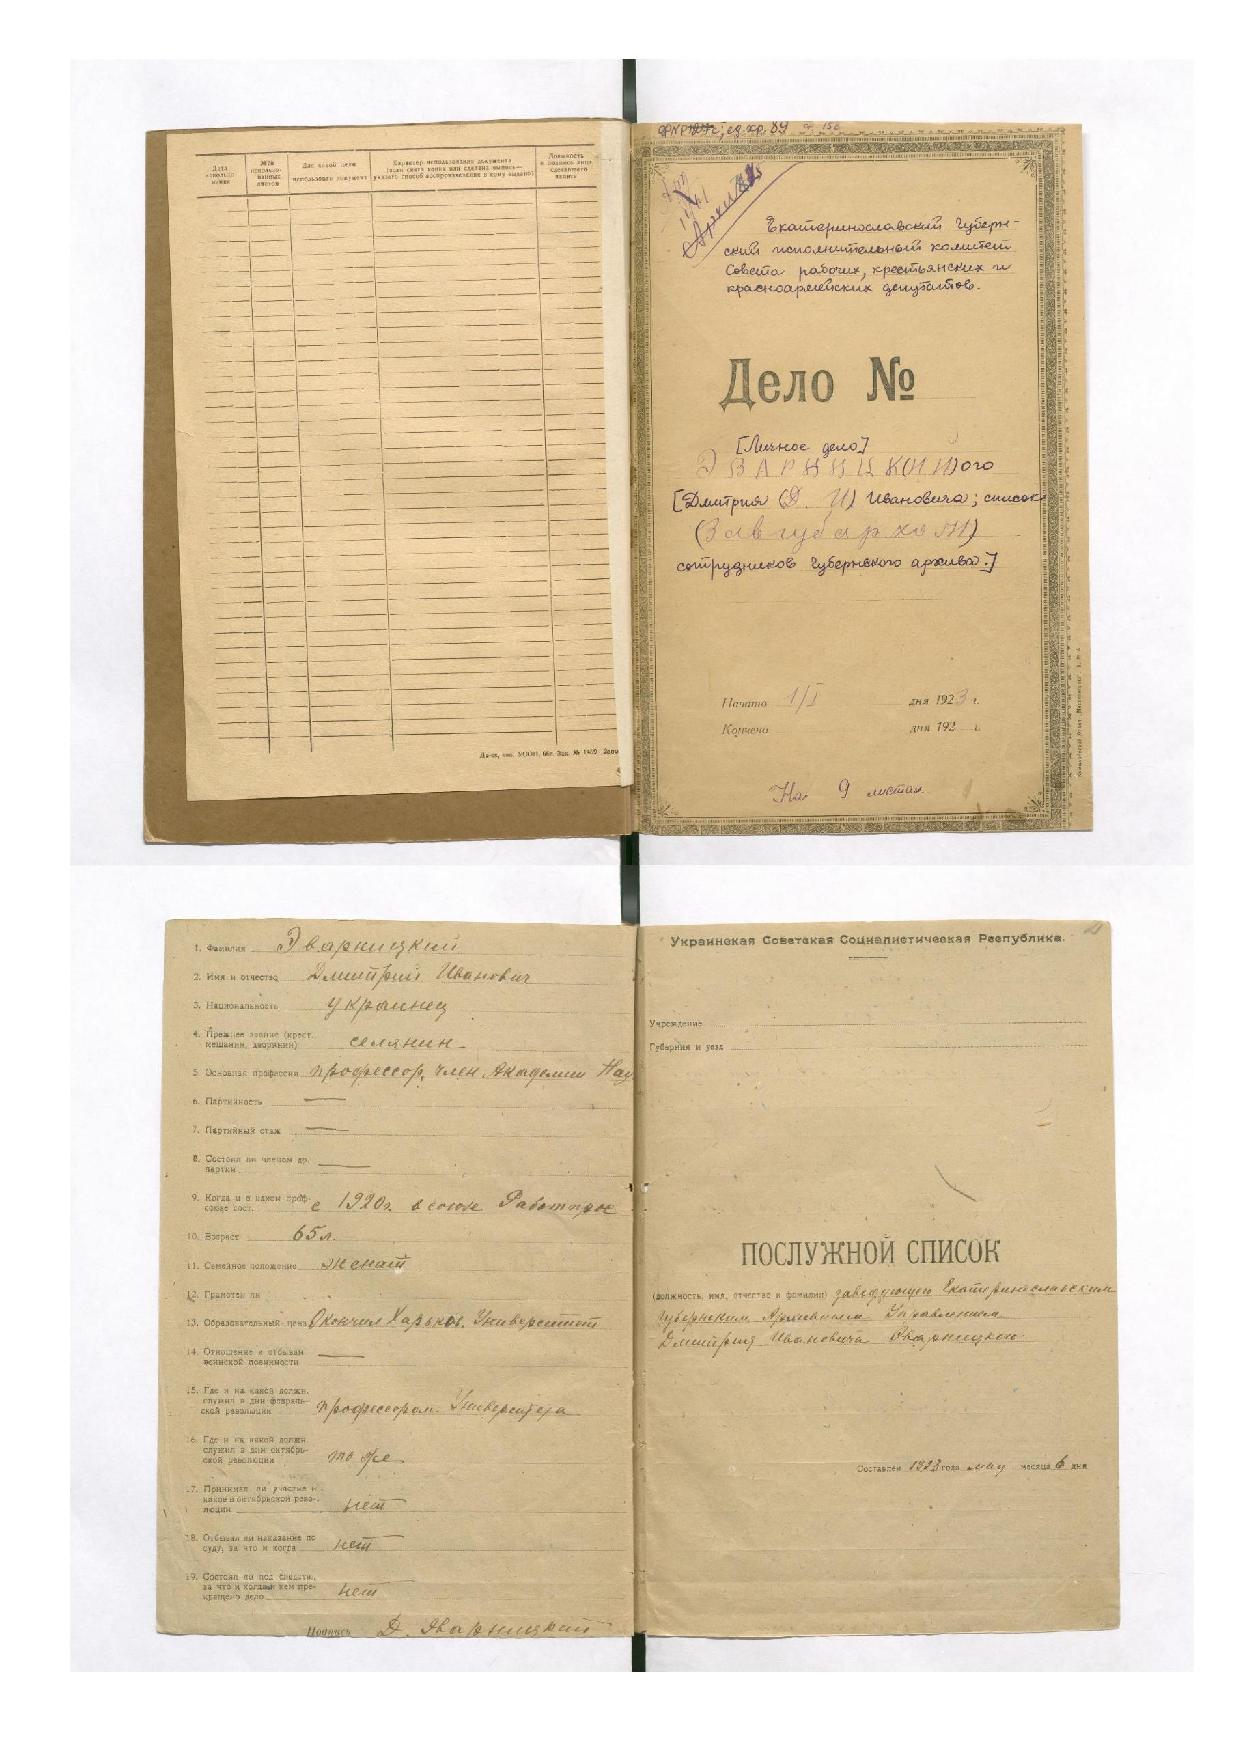 Дата
использо-
вания
№№
использо-
ванных
листов
Для какой цели
использован документ
Характер использования документа
(одна снята копия или сделана выпись—
указать способ воспроизведения и кому выдано)
Должность
и подпись лица
сделавшего
запись
Зак. № 1969
ед. хр. 89
Архив
Екатеринославский Губерн-
ский исполнительный комитет
Совета рабочих, крестьянских и
красноармейских депутатов.
Дело №
[Личное дело]
ЭВАРНИЦК(ИЙ)ого
[Дмитрия (Д. И) Ивановича; список
(Завгубархом)
сотрудников Губернского архива.]
Начато 1/I дня 1923 г.
Кончено дня 192 г.
На 9 листах
1. Фамилия Эварницкий
2. Имя и отчество Дмитрий Иванович
3. Национальность украинец
4. Прежнее звание (крест.
мещанин, дворянин) селянин
5. Основная профессия профессор, член Академии Наук
6. Партийность —
7. Партийный стаж —
8. Состоял ли членом др.
партии —
9. Когда и в каком проф-
союзе сост. с 1920 г. в союзе Работпрос
10. Возраст 65 л.
11. Семейное положение женат
12. Грамотен ли
13. Образовательный ценз Окончил Харьков. Университет
14. Отношение к отбыван.
воинской повинности —
15. Где и на какой должн.
служил в дни февраль-
ской революции профессором Университета
16. Где и на какой должн.
служил в дни октябрь-
ской революции то же
17. Принимал ли участие и
какое в октябрьской рево-
люции нет
18. Отбывал ли наказание по
суду, за что и когда нет
19. Состоял ли под следств.,
за что и когда и кем пре-
кращено дело нет
Подпись Д. Эварницкий
Украинская Советская Социалистическая Республика.
Учреждение
Губерния и уезд
ПОСЛУЖНОЙ СПИСОК
(должность, имя, отчество и фамилия) заведующего Екатеринославским
Губернским Архивным Управлением
Дмитрия Ивановича Эварницкого
Составлен 1923 года мау месяца 6 дня